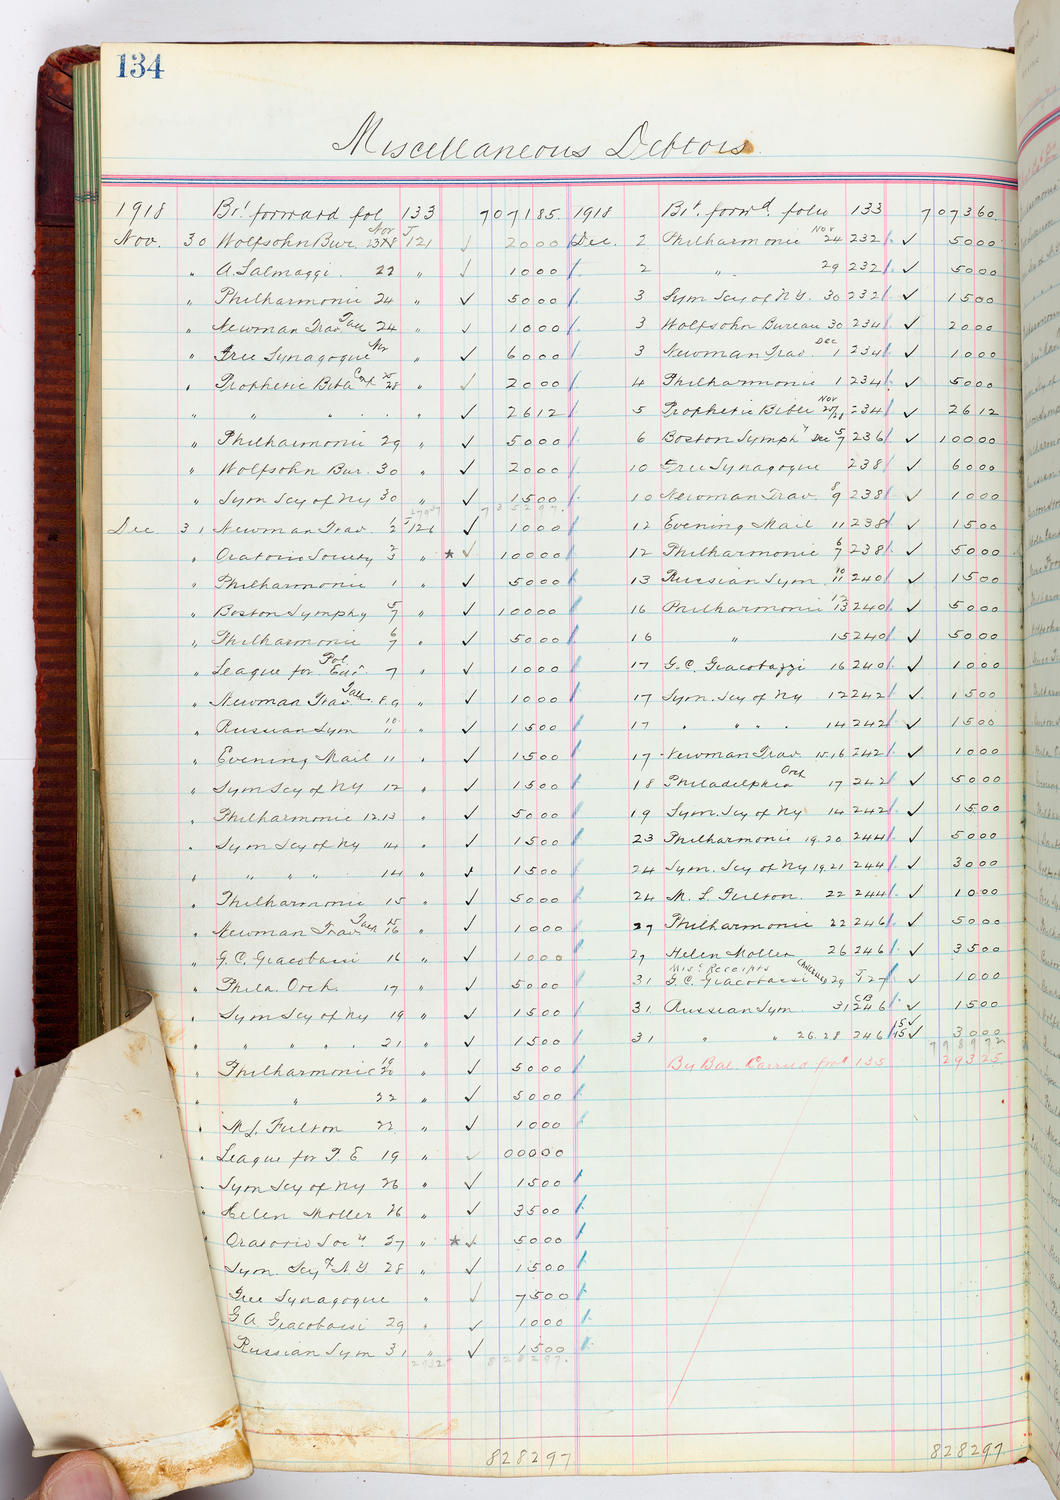 134
Miscellaneous Debtors.
1918 Brt forward fol 133 707185.
Nov. 30 Wolfsohn Bur. Nov J 121 ✓ 2000
" A. Salmaggi. 22 " ✓ 1000
" Philharmonic 24 " ✓ 5000
" Newman Trav Talk 24 " ✓ 1000
" Free Synagogue Nov " ✓ 6000
" Prophetic Bible Conf 25 28 " ✓ 2000
" " " " " ✓ 2612
" Philharmonic 29 " ✓ 5000
" Wolfsohn Bur. 30 " ✓ 2000
" Sym Scy of NY 30 " ✓ 1500
735297.
Dec 31 Newman Trav 1/2 J 126 ✓ 1000
" Oratorio Society 2/3 " * ✓ 10000
" Philharmonic 1 " ✓ 5000
" Boston Symphy 5/7 " ✓ 10000
" Philharmonic 6/7 " ✓ 5000
" League for Pol Edn 7 " ✓ 1000
" Newman Trav Talk 8.9 " ✓ 1000
" Russian Sym 10/11 " ✓ 1500
" Evening Mail 11 " ✓ 1500
" Sym Scy of NY 12 " ✓ 1500
" Philharmonic 12.13 " ✓ 5000
" Sym Scy of NY 14 " ✓ 1500
" " " " " 14 " ✓ 1500
" Philharmonic 15 " ✓ 5000
" Newman Trav Talk 15/16 " ✓ 1000
" G. C. Giacobassi 16 " ✓ 1000
" Phila. Orch. 17 " ✓ 5000
" Sym Scy of NY 19 " ✓ 1500
" " " " " 21 " ✓ 1500
" Philharmonic 19/20 " ✓ 5000
" " 22 " ✓ 5000
" M.L. Fulton 22 " ✓ 1000
" League for P. E 19 " ✓ 00000
" Sym Scy of NY 26 " ✓ 1500
" Helen Moller 26 " ✓ 3500
" Oratorio Socy 27 " * ✓ 5000
Sym. Scy of N.Y. 28 " ✓ 1500
Free Synagogue " ✓ 7500
G A Giacobassi 29 " ✓ 1000
Russian Sym 31 " ✓ 1500
29325 828297.
828297
1918 Brt. forwd. folio 133 707360.
Dec. 2 Philharmonic Nov 24 232 ✓ 5000
2 " 29 232 ✓ 5000
3 Sym Scy of N.Y. 30 232 ✓ 1500
3 Wolfsohn Bureau 30 234 ✓ 2000
3 Newman Trav. Dec 1 234 ✓ 1000
4 Philharmonic 1 234 ✓ 5000
5 Prophetic Bible Nov 234 ✓ 2612
6 Boston Symphy Dec 5/7 236 ✓ 10000
10 Free Synagogue 238 ✓ 6000
10 Newman Trav. 8/9 238 ✓ 1000
12 Evening Mail 11 238 ✓ 1500
12 Philharmonic 6/7 238 ✓ 5000
13 Russian Sym 10/11 240 ✓ 1500
16 Philharmonic 12/13 240 ✓ 5000
16 " 15 240 ✓ 5000
17 G.C. Giacobazzi 16 240 ✓ 1000
17 Sym. Scy of NY 12 242 ✓ 1500
17 " " " " 14 242 ✓ 1500
17 Newman Trav. 15.16 242 ✓ 1000
18 Philadelphia Orch 17 242 ✓ 5000
19 Sym. Scy of NY 14 242 ✓ 1500
23 Philharmonic 19.20 244 ✓ 5000
24 Sym. Scy of NY 19 21 244 ✓ 3000
24 M. L. Fulton. 22 244 ✓ 1000
27 Philharmonic 22 246 ✓ 5000
27 Helen Moller 26 246 ✓ 3500
Misc. Receipts Cancelled
31 G.C. Giacobassi 29 J 127 ✓ 1000
31 Russian Sym. 31 CB 246 ✓ 1500
31 " " 26.28 246 15 ✓ 15 ✓ 3000
798972
By Bal. Carried forwd 135 29325
828297